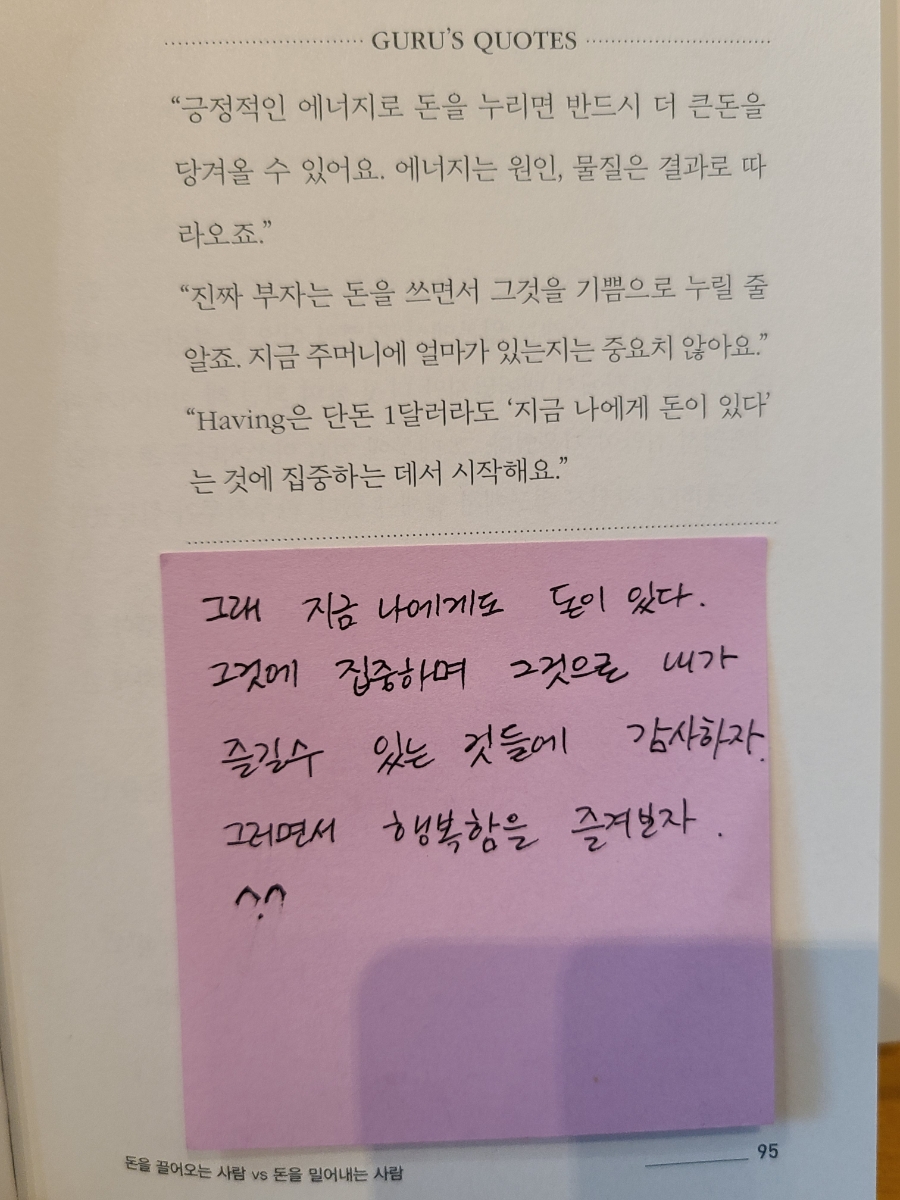 GURU'S QUOTES
“긍정적인 에너지로 돈을 누리면 반드시 더 큰돈을
당겨올 수 있어요. 에너지는 원인, 물질은 결과로 따
라오죠.”
“진짜 부자는 돈을 쓰면서 그것을 기쁨으로 누릴 줄
알죠. 지금 주머니에 얼마가 있는지는 중요치 않아요.”
“Having은 단돈 1달러라도 ‘지금 나에게 돈이 있다’
는 것에 집중하는 데서 시작해요.”
그래 지금 나에게도 돈이 있다.
그것에 집중하며 그것으로 내가
즐길수 있는 것들에 감사하자.
그러면서 행복함을 즐겨보자.
^.^
돈을 끌어오는 사람 vs 돈을 밀어내는 사람
95